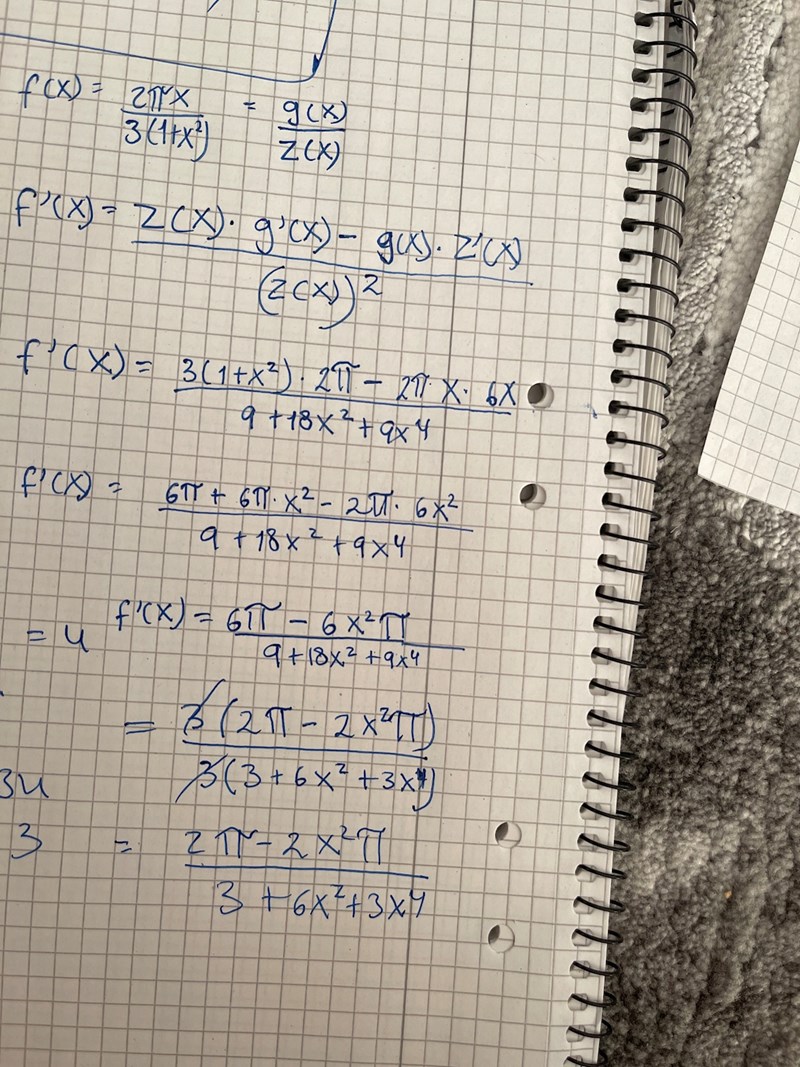 f(x) = 2πx / 3(1+x²) = g(x) / z(x)
f'(x) = z(x) · g'(x) − g(x) · z'(x) / (z(x))²
f'(x) = 3(1+x²) · 2π − 2π · x · 6x / 9 + 18x² + 9x⁴
f'(x) = 6π + 6π · x² − 2π · 6x² / 9 + 18x² + 9x⁴
= 4 f'(x) = 6π − 6x²π / 9 + 18x² + 9x⁴
= 3(2π − 2x²π) / 3(3 + 6x² + 3x⁴)
3 = 2π − 2x²π / 3 + 6x² + 3x⁴